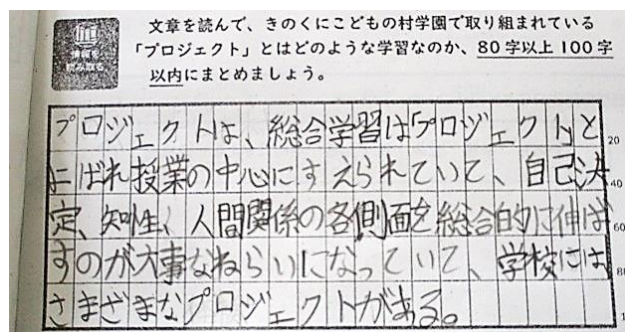 文章を読んで、きのくにこどもの村学園で取り組まれている
「プロジェクト」とはどのような学習なのか、80字以上100字
以内にまとめましょう。
プロジェクトは、総合学習は「プロジェクト」と
20
よばれ授業の中心にすえられていて、自己決
40
定、知性、人間関係の各側面を総合的に伸ば
60
すのが大事なねらいになっていて、学校には
さまざまなプロジェクトがある。